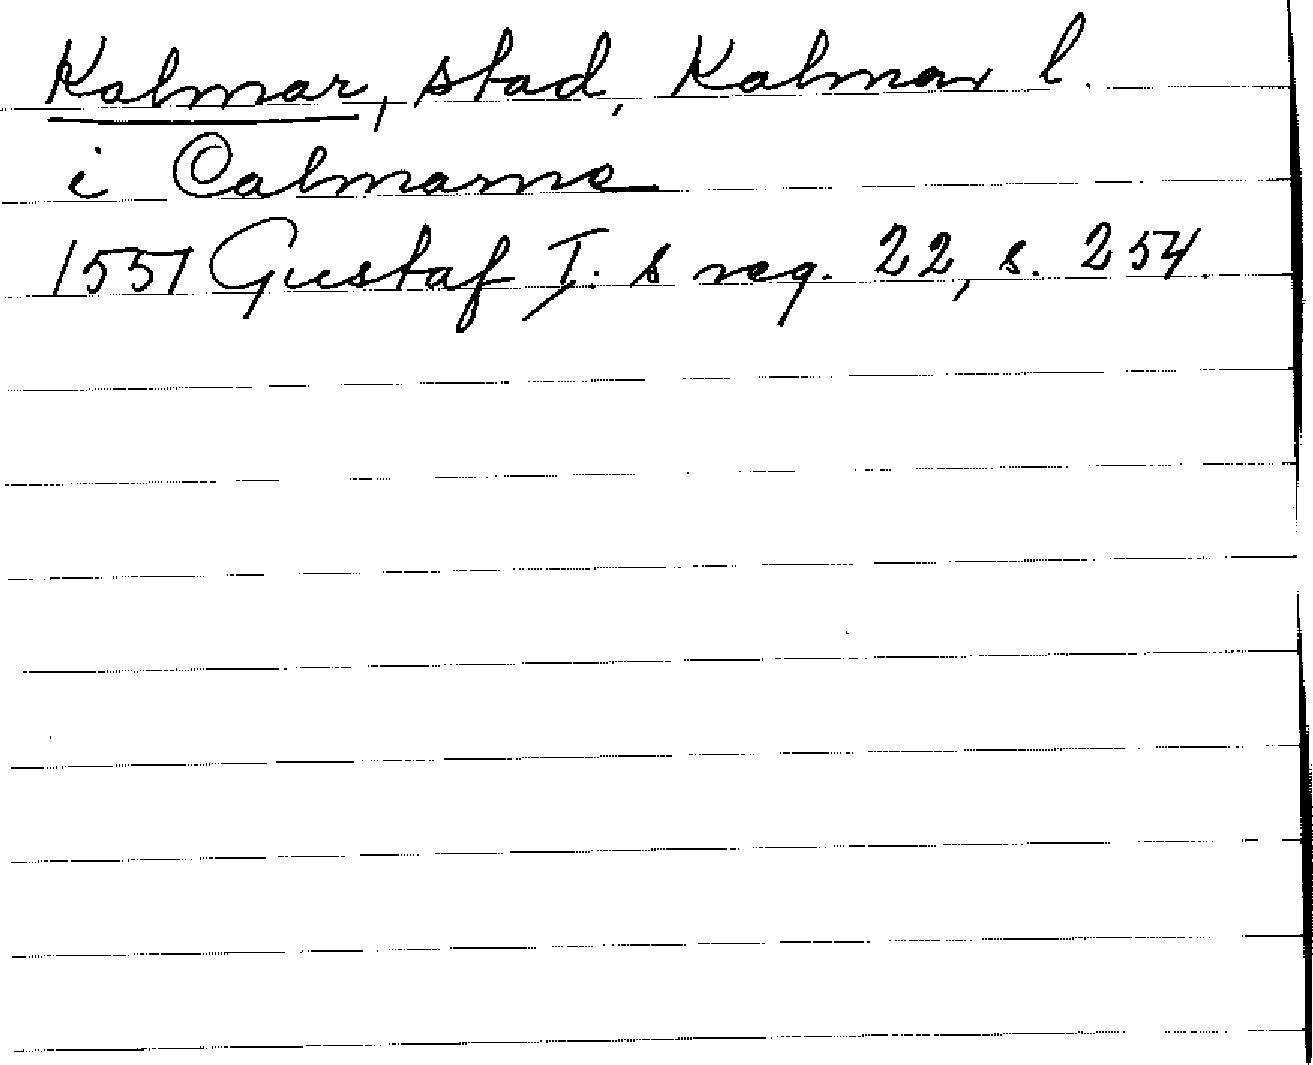 Kalmar, stad, Kalmar l.
i Calmarne
1551 Gustaf I: s reg. 22, s. 254.